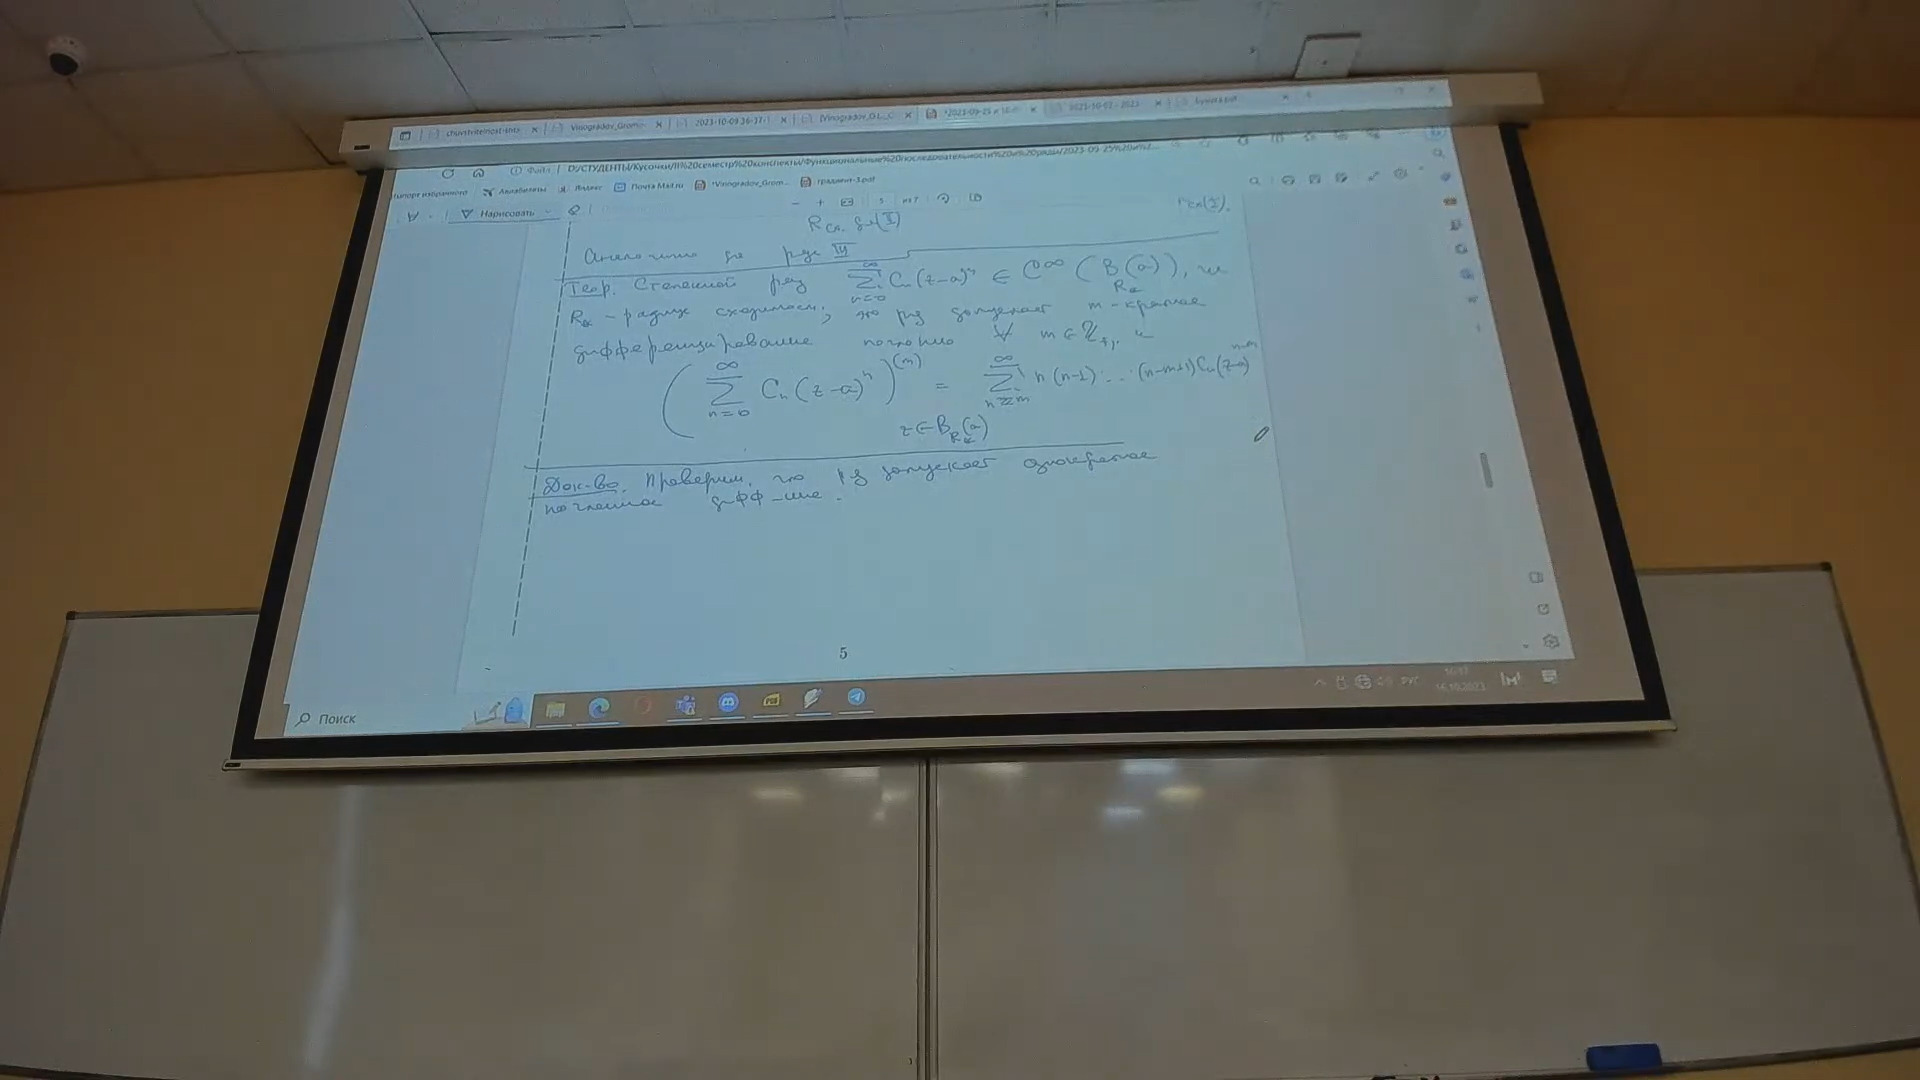 chuvstvitelnost-inta
Vinogradov_Grom
2023-10-09 36-37-1
(Vinogradov_O.L._
*2023-09-25 и
2023-10-02 - 2023
Бумага.pdf
Файл D:/СТУДЕНТЫ/Кусочки/III%20семестр%20конспекты/Функциональные%20последовательности%20и%20ряды/2023-09-25%20и%2...
Импорт избранного Авиабилеты Яндекс Почта Mail.ru *Vinogradov_Grom... градиент-3.pdf
Нарисовать
R сх. (I)
r сх(I).
Аналогично до ряда III
Теор. Степенной ряд ∑_{n=0}^{∞} C_n (z-a)^n ∈ C^∞ (B_{R_*}(a)), где
R_* - радиус сходимости, это ряд допускает m-кратное
дифференцирование почленно ∀ m ∈ Z_+, и
(∑_{n=0}^{∞} C_n (z-a)^n)^{(m)} = ∑_{n≥m}^{∞} n(n-1)·...·(n-m+1) C_n (z-a)^{n-m}
z ∈ B_{R_*}(a)
Док-во. Проверим, что ряд допускает однократное
почленное дифф-ние.
5
Поиск
РУС
16.10.2023